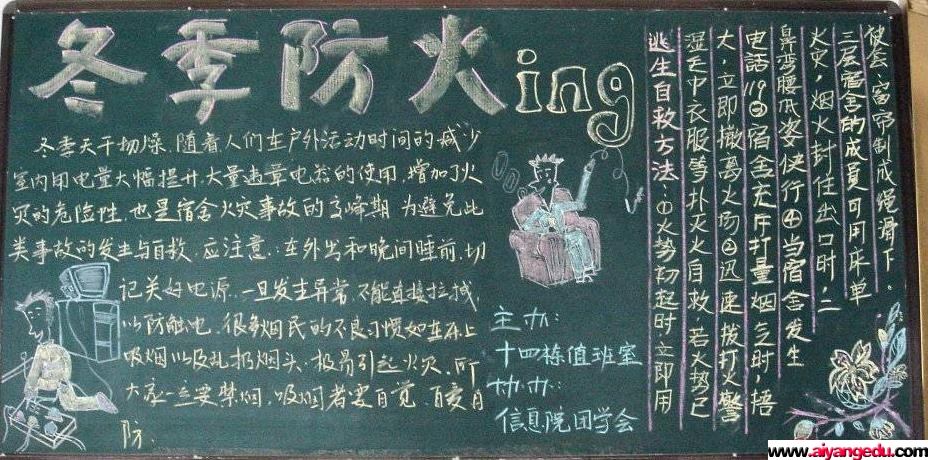 冬季防火ing
冬季天干物燥.随着人们在户外活动时间的减少
室内用电量大幅提升.大量违章电器的使用,增加了火
灾的危险性.也是宿舍火灾事故的高峰期 为避免此
类事故的发生与自救.应注意:在外出和晚间睡前,切
记关好电源.一旦发生异常.不能直接拉扯,
以防触电.很多烟民的不良习惯如在床上
吸烟以及乱扔烟头.极易引起火灾.所
大家一定要禁烟,吸烟者要自觉、自爱自
防.
主办:
十四栋值班室
协办:
信息院团学会
逃生自救方法:①火势初起时立即用
湿毛巾衣服等扑灭火自救 若火势已
大,立即撤离火场②迅速拨打火警
电話119③宿舍充斥打量烟气时,捂
鼻弯腰低姿快行④当宿舍发生
火灾,烟火封住出口时,二
三层宿舍的成員可用床单
被套、窗帘制成绳滑下。
www.aiyangedu.com